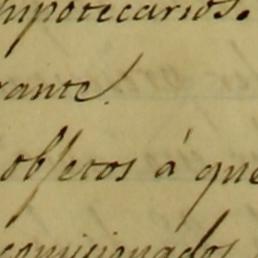 hipotecarios.
rante.
objetos á que
comicionados